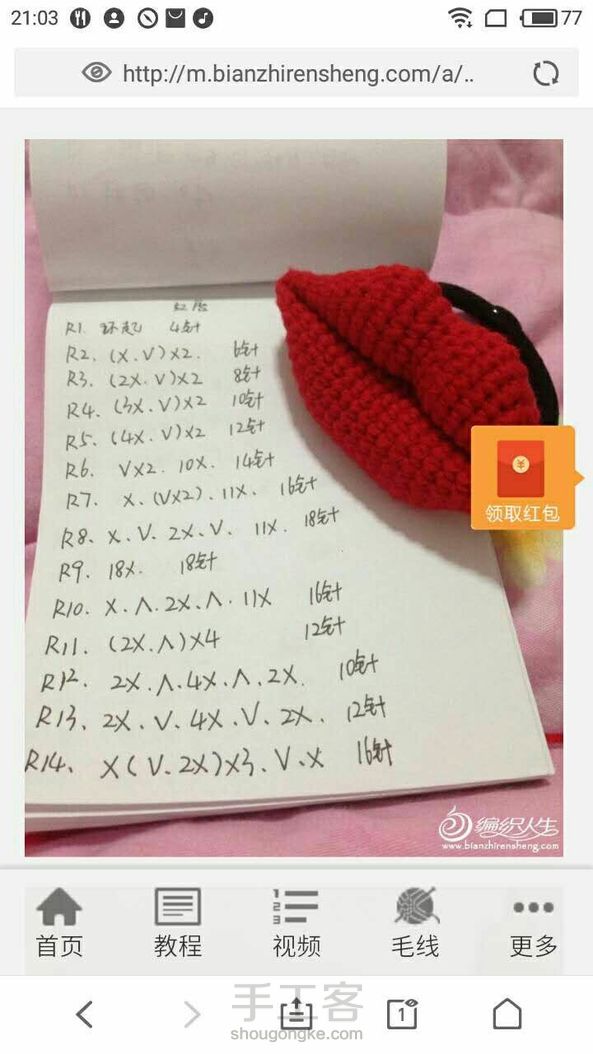 21:03
77
http://m.bianzhirensheng.com/a/..
红唇
R1. 环起 4针
R2. (X.V)X2. 6针
R3. (2X.V)X2 8针
R4. (3X.V)X2 10针
R5. (4X.V)X2 12针
R6. VX2. 10X. 14针
R7. X.(VX2).11X. 16针
R8、X.V. 2X.V. 11X. 18针
R9. 18X. 18针
R10. X.Λ.2X.Λ.11X 16针
R11. (2X.Λ)X4 12针
R12. 2X.Λ.4X.Λ.2X. 10针
R13、2X.V.4X.V.2X. 12针
R14、X(V.2X)X3、V.X 16针
¥
领取红包
编织人生
www.bianzhirensheng.com
首页 教程 视频 毛线 更多
1
手工客
shougongke.com